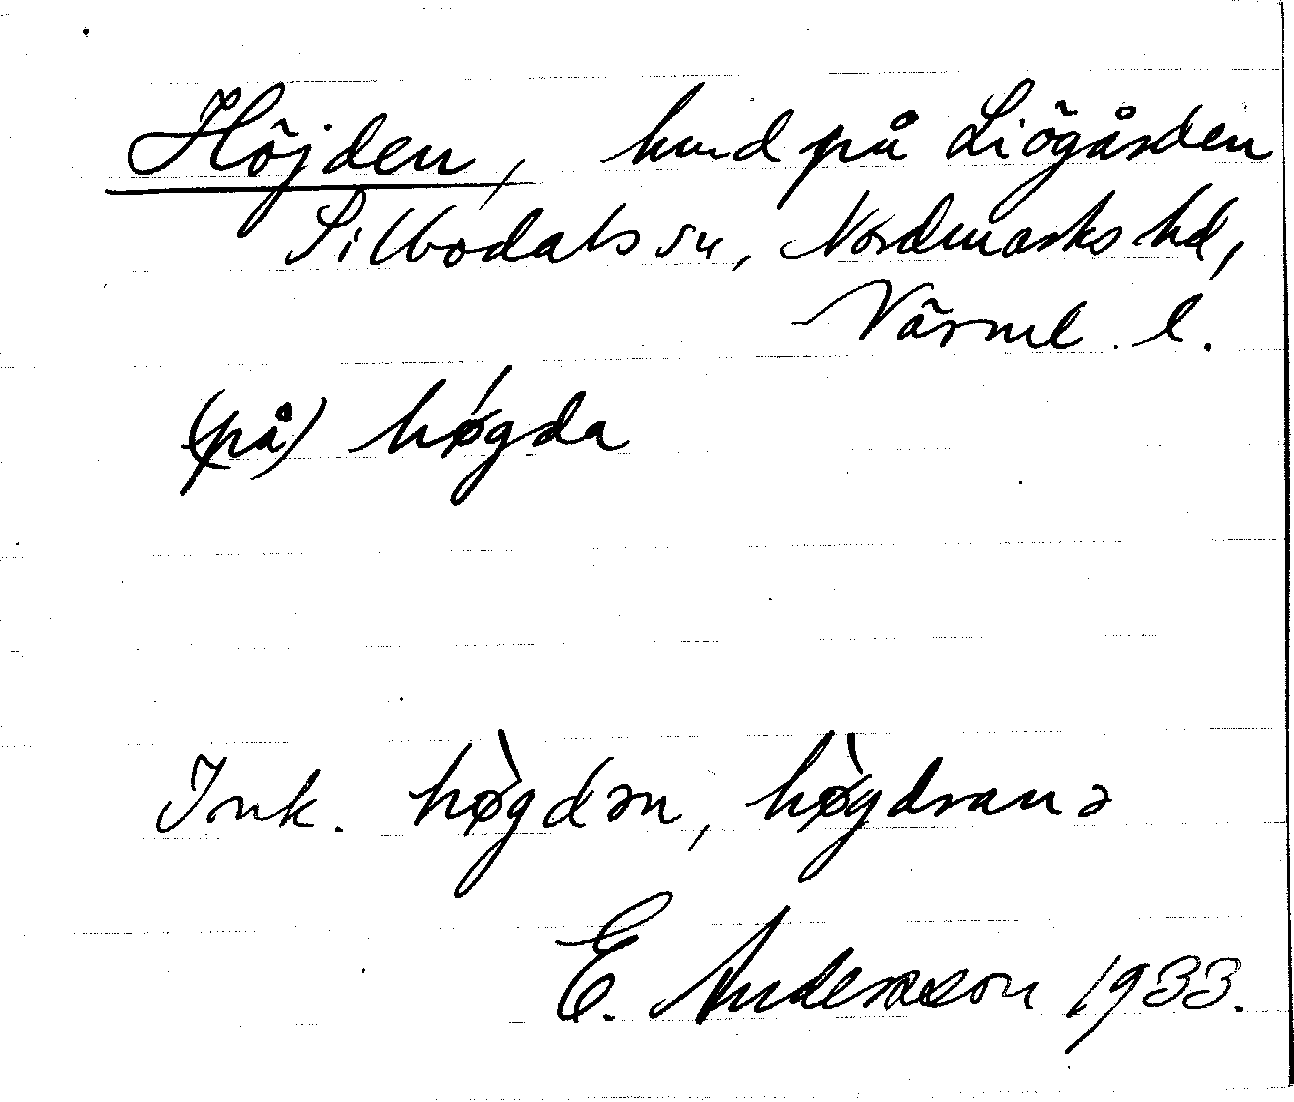 Höjden, hmd på Liögården
Silbodals sn, Nordmarks hd,
Värml. l.
(på) hǿgda
Ink. hø̀gdən, hø̀gdranə
E. Andersson 1933.